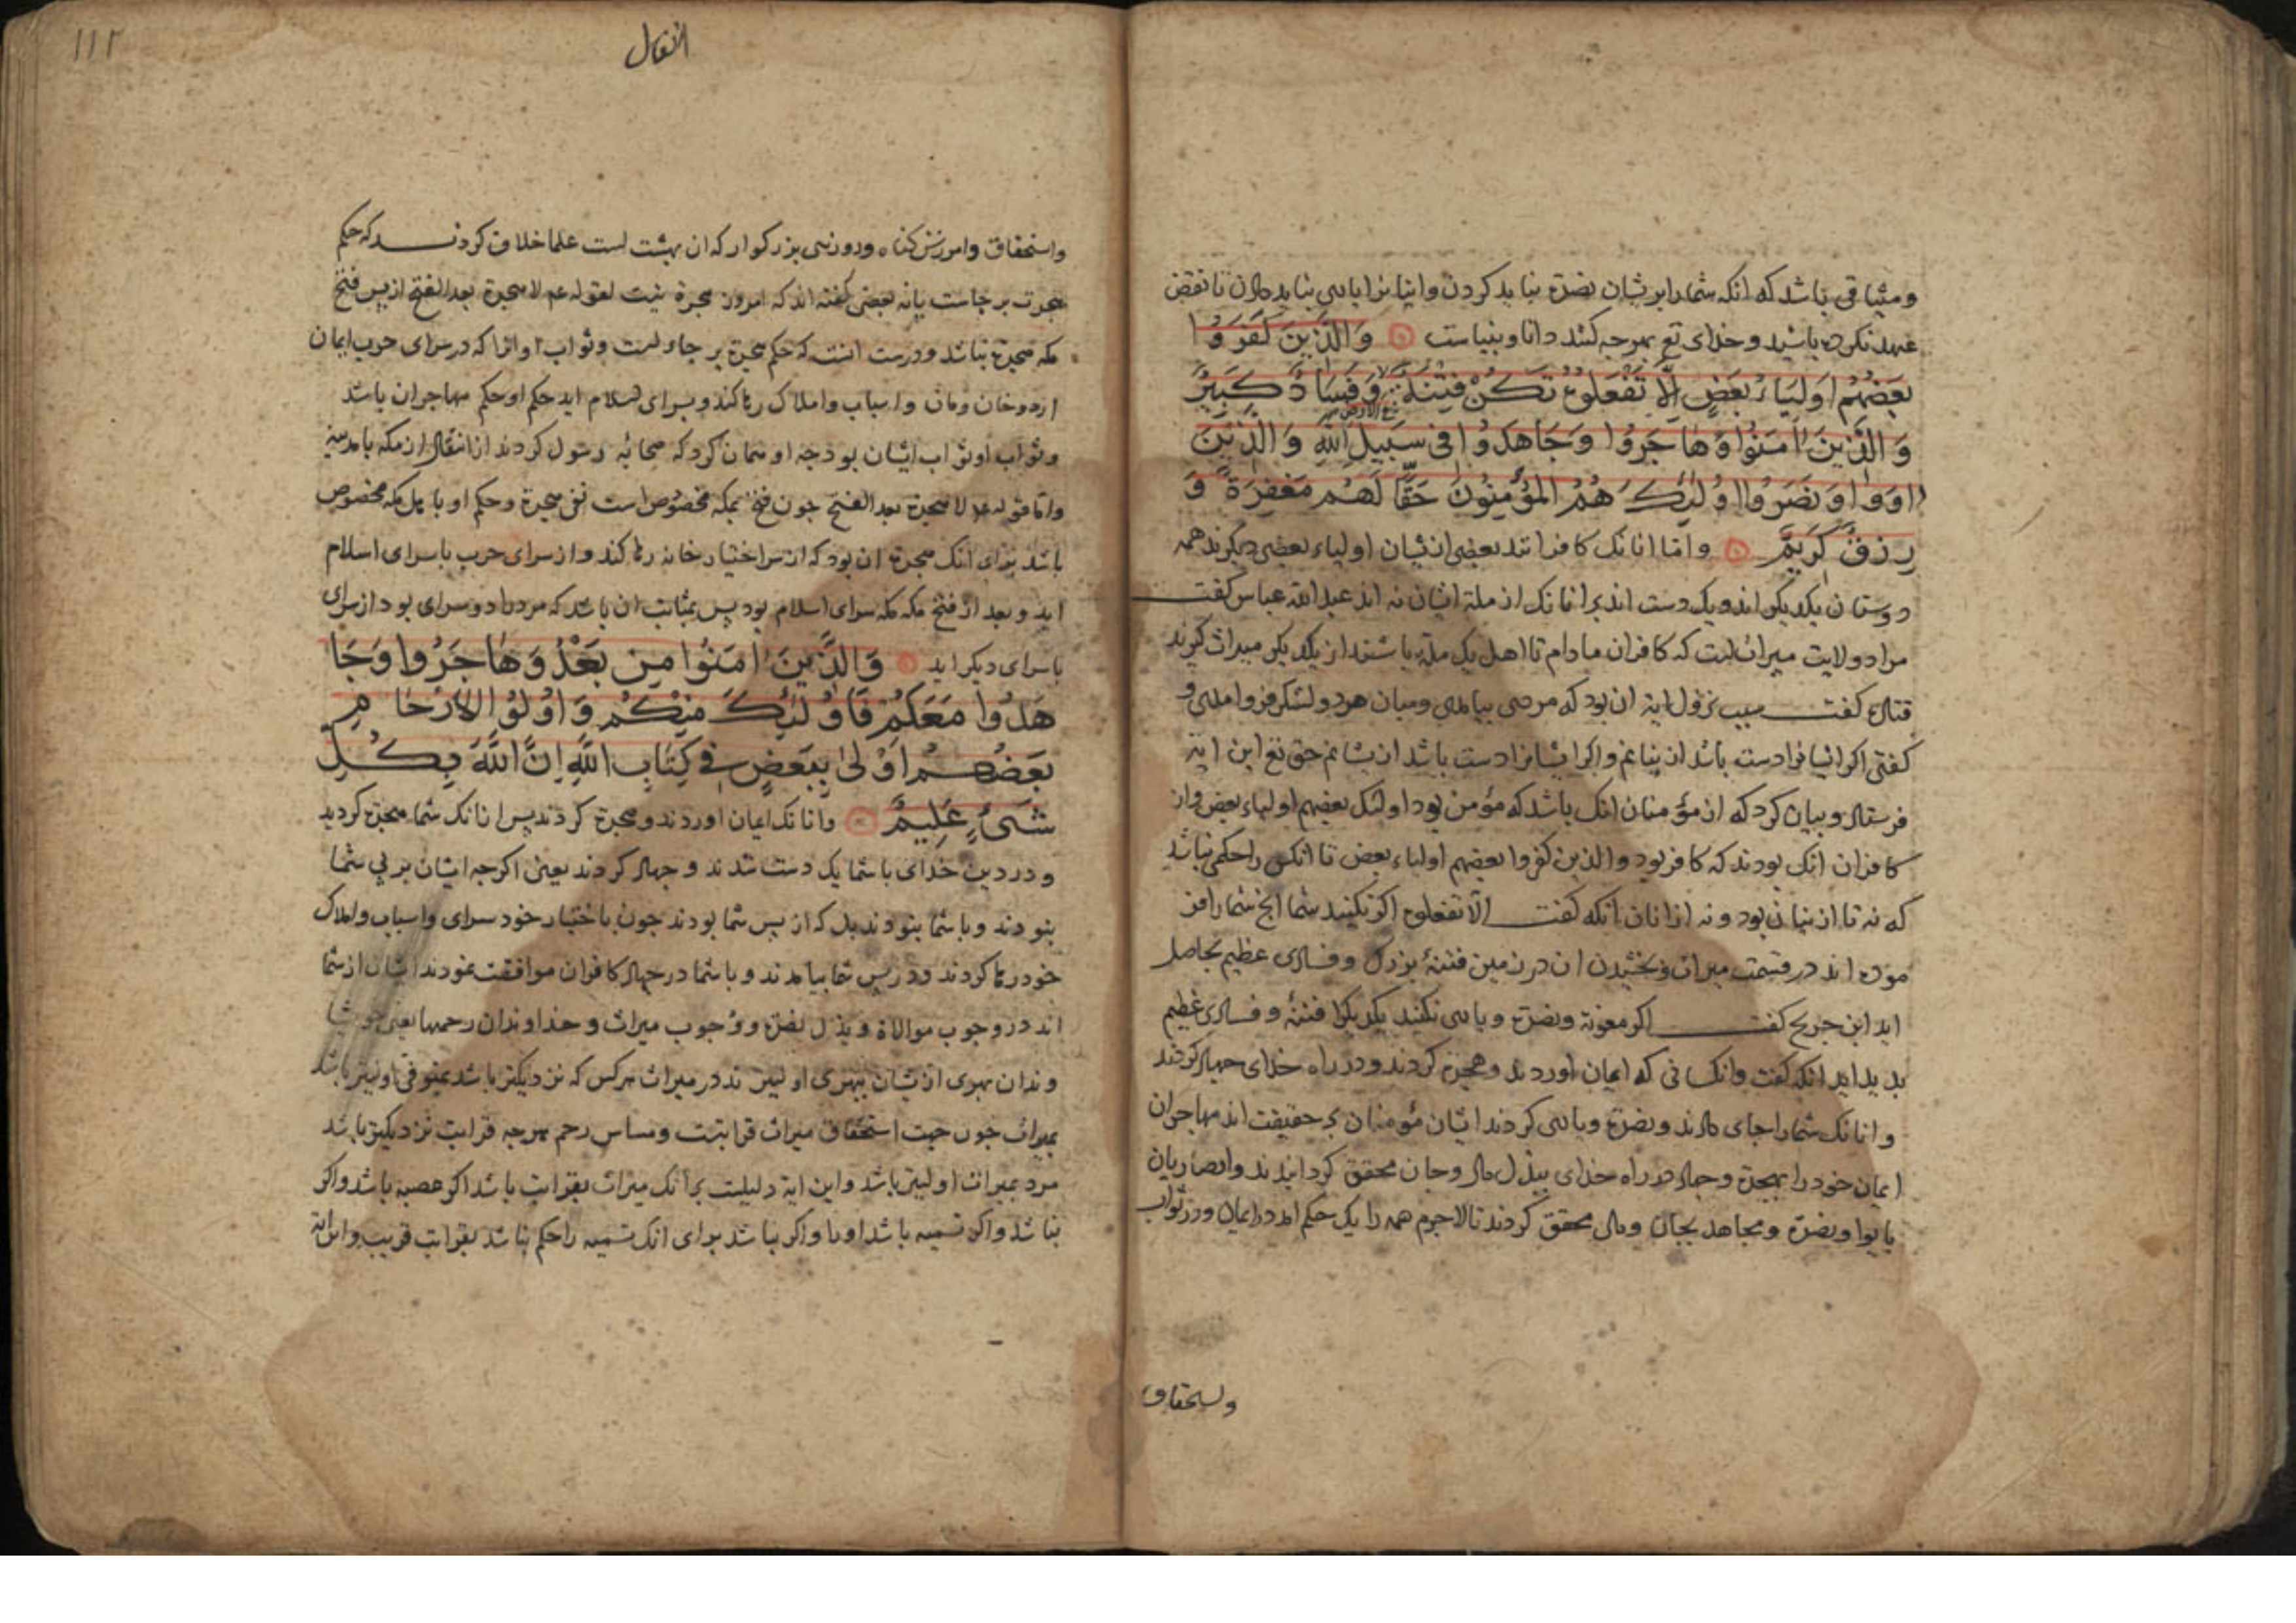 ومیثاقی باشد که انکه شما را بریشان نصرة نباید کردن وایشانرا یاسی نباید دادن تا نقض
عهد نکرده باشید وخدای تع بهرجه کنند دانا وبیناست وَالَّذِينَ كَفَرُوا
بَعْضُهُمْ اَوْلِيَاءُ بَعْضٍ اِلَّا تَفْعَلُوهُ تَكُنْ فِتْنَةٌ وَفَسَادٌ كَبِيرٌ
فى الارض
وَالَّذِينَ اٰمَنُوا وَهَاجَرُوا وَجَاهَدُوا فِى سَبِيلِ اللّٰهِ وَالَّذِينَ
اٰوَوا وَنَصَرُوا اُولٰئِكَ هُمُ الْمُؤْمِنُونَ حَقًّا لَهُمْ مَغْفِرَةٌ وَ
رِزْقٌ كَرِيمٌ واما انانک کافرانند بعضی ازیشان اولیاء بعضی دیکرند همه
دوستان یکدیکراند ویک دست اند بر انانک از ملة ایشان نه اند عبدالله عباس کفت
مراد ولایت میراث است که کافران مادام تا اهل یک ملة باشند از یکدیکر میراث کیرند
قتاده کفت سبب نزول ایة ان بود که مردی بیامدی ومیان هر دو لشکر فروامدی و
کفتی اکر ایشانرا دست باشد ازینانم واکر ایشانرا دست باشد ازیشانم حق تع این ایة
فرستاد وبیان کرد که از مؤمنان انک باشد که مؤمن بود اولئک بعضهم اولیاء بعض واز
کافران انک بودند که کافر بود والذین کفروا بعضهم اولیاء بعض تا انکس را حکمی نباشد
که نه تا ازینان بود ونه ازانان انکه کفت الا تفعلوه اکر نکنید شما انج شما را فر
موده اند در قسمت میراث وبخشیدن ان در زمین فتنۀ بزرک وفسادی عظیم بحاصل
اید ابن جریج کفت اکر معونة ونصرة ویاسی نکنند یکدیکر را فتنۀ وفسادی عظیم
بدید اید انکه کفت وانکسانی که ایمان اوردند وهجرة کردند ودر راه خدای جهاد کردند
وانانک شما را جای دادند ونصرة ویاسی کردند ایشان مؤمنان بر حقیقت اند مهاجران
ایمان خود را بهجرة وجهاد در راه خدای ببذل مال وجان محقق کردانیدند وانصاریان
بایوا ونصرة ومجاهد بجان ومال محقق کردند تا لاجرم همه را یک حکم اند در ایمان ودر ثواب
واستحقاق
١١٢
الانفال
واستحقاق وامرزش کناه وروزیی بزرکوار که ان بهشت است علما خلاف کردند که حکم
هجرت برجاست یا نه بعضی کفته اند که امروز هجرة نیست لقوله عم لا هجرة بعد الفتح از پس فتح
مکه هجرة نباشد ودرست انست که حکم هجرة بر جاء است وثواب او انرا که در سرای حرب ایمان
ارد وخان ومان واسباب واملاک رها کند وبسرای اسلام اید حکم او حکم مهاجران باشد
وثواب او ثواب ایشان بود جه او همان کرد که صحابۀ رسول کردند از انتقال از مکه با مدینه
واما قوله عم لا هجرة بعد الفتح جون فتح بمکه مخصوص است نفی هجرة وحکم او باهل مکه مخصوص
باشد برای انک هجرة ان بود که از سر اختیار خانه رها کند واز سرای حرب با سرای اسلام
اید وبعد از فتح مکه مکه سرای اسلام بود پس بمثابت ان باشد که مرد را دو سرای بود از سرای
با سرای دیکر اید وَالَّذِينَ اٰمَنُوا مِنْ بَعْدُ وَهَاجَرُوا وَجَا
هَدُوا مَعَكُمْ فَاُولٰئِكَ مِنْكُمْ وَاُولُوا الْاَرْحَامِ
بَعْضُهُمْ اَوْلٰى بِبَعْضٍ فِى كِتَابِ اللّٰهِ اِنَّ اللّٰهَ بِكُلِّ
شَىْءٍ عَلِيمٌ وانانک ایمان اوردند وهجرة کردند پس انانک شما هجرة کردید
ودر دین خدای با شما یک دست شدند وجهاد کردند یعنی اکرجه ایشان بر پی شما
بنودند وبا شما بنودند بل که از پس شما بودند جون باختیار خود سرای واسباب واملاک
خود رها کردند ودر پس شما بیامدند وبا شما در جهاد کافران موافقت نمودند ایشان از شما
اند در وجوب موالاة وبذل نصرة ووجوب میراث وخداوندان رحمها یعنی خویشا
وندان بهری ازیشان ببهری اولیتر ند در میراث هرکس که نزدیکتر باشد بمتوفی اولیتر باشد
بمیراث جون جهت استحقاق میراث قرابتست ومساس رحم هرجه قرابت نزدیکتر باشد
مرد بمیراث اولیتر باشد واین ایة دلیلست بر انک میراث بقرابت باشد اکر عصبه باشد واکر
نباشد واکر تسمیه باشد اورا واکر نباشد برای انک تسمیه را حکم نباشد بقرابت قریب واین ایة